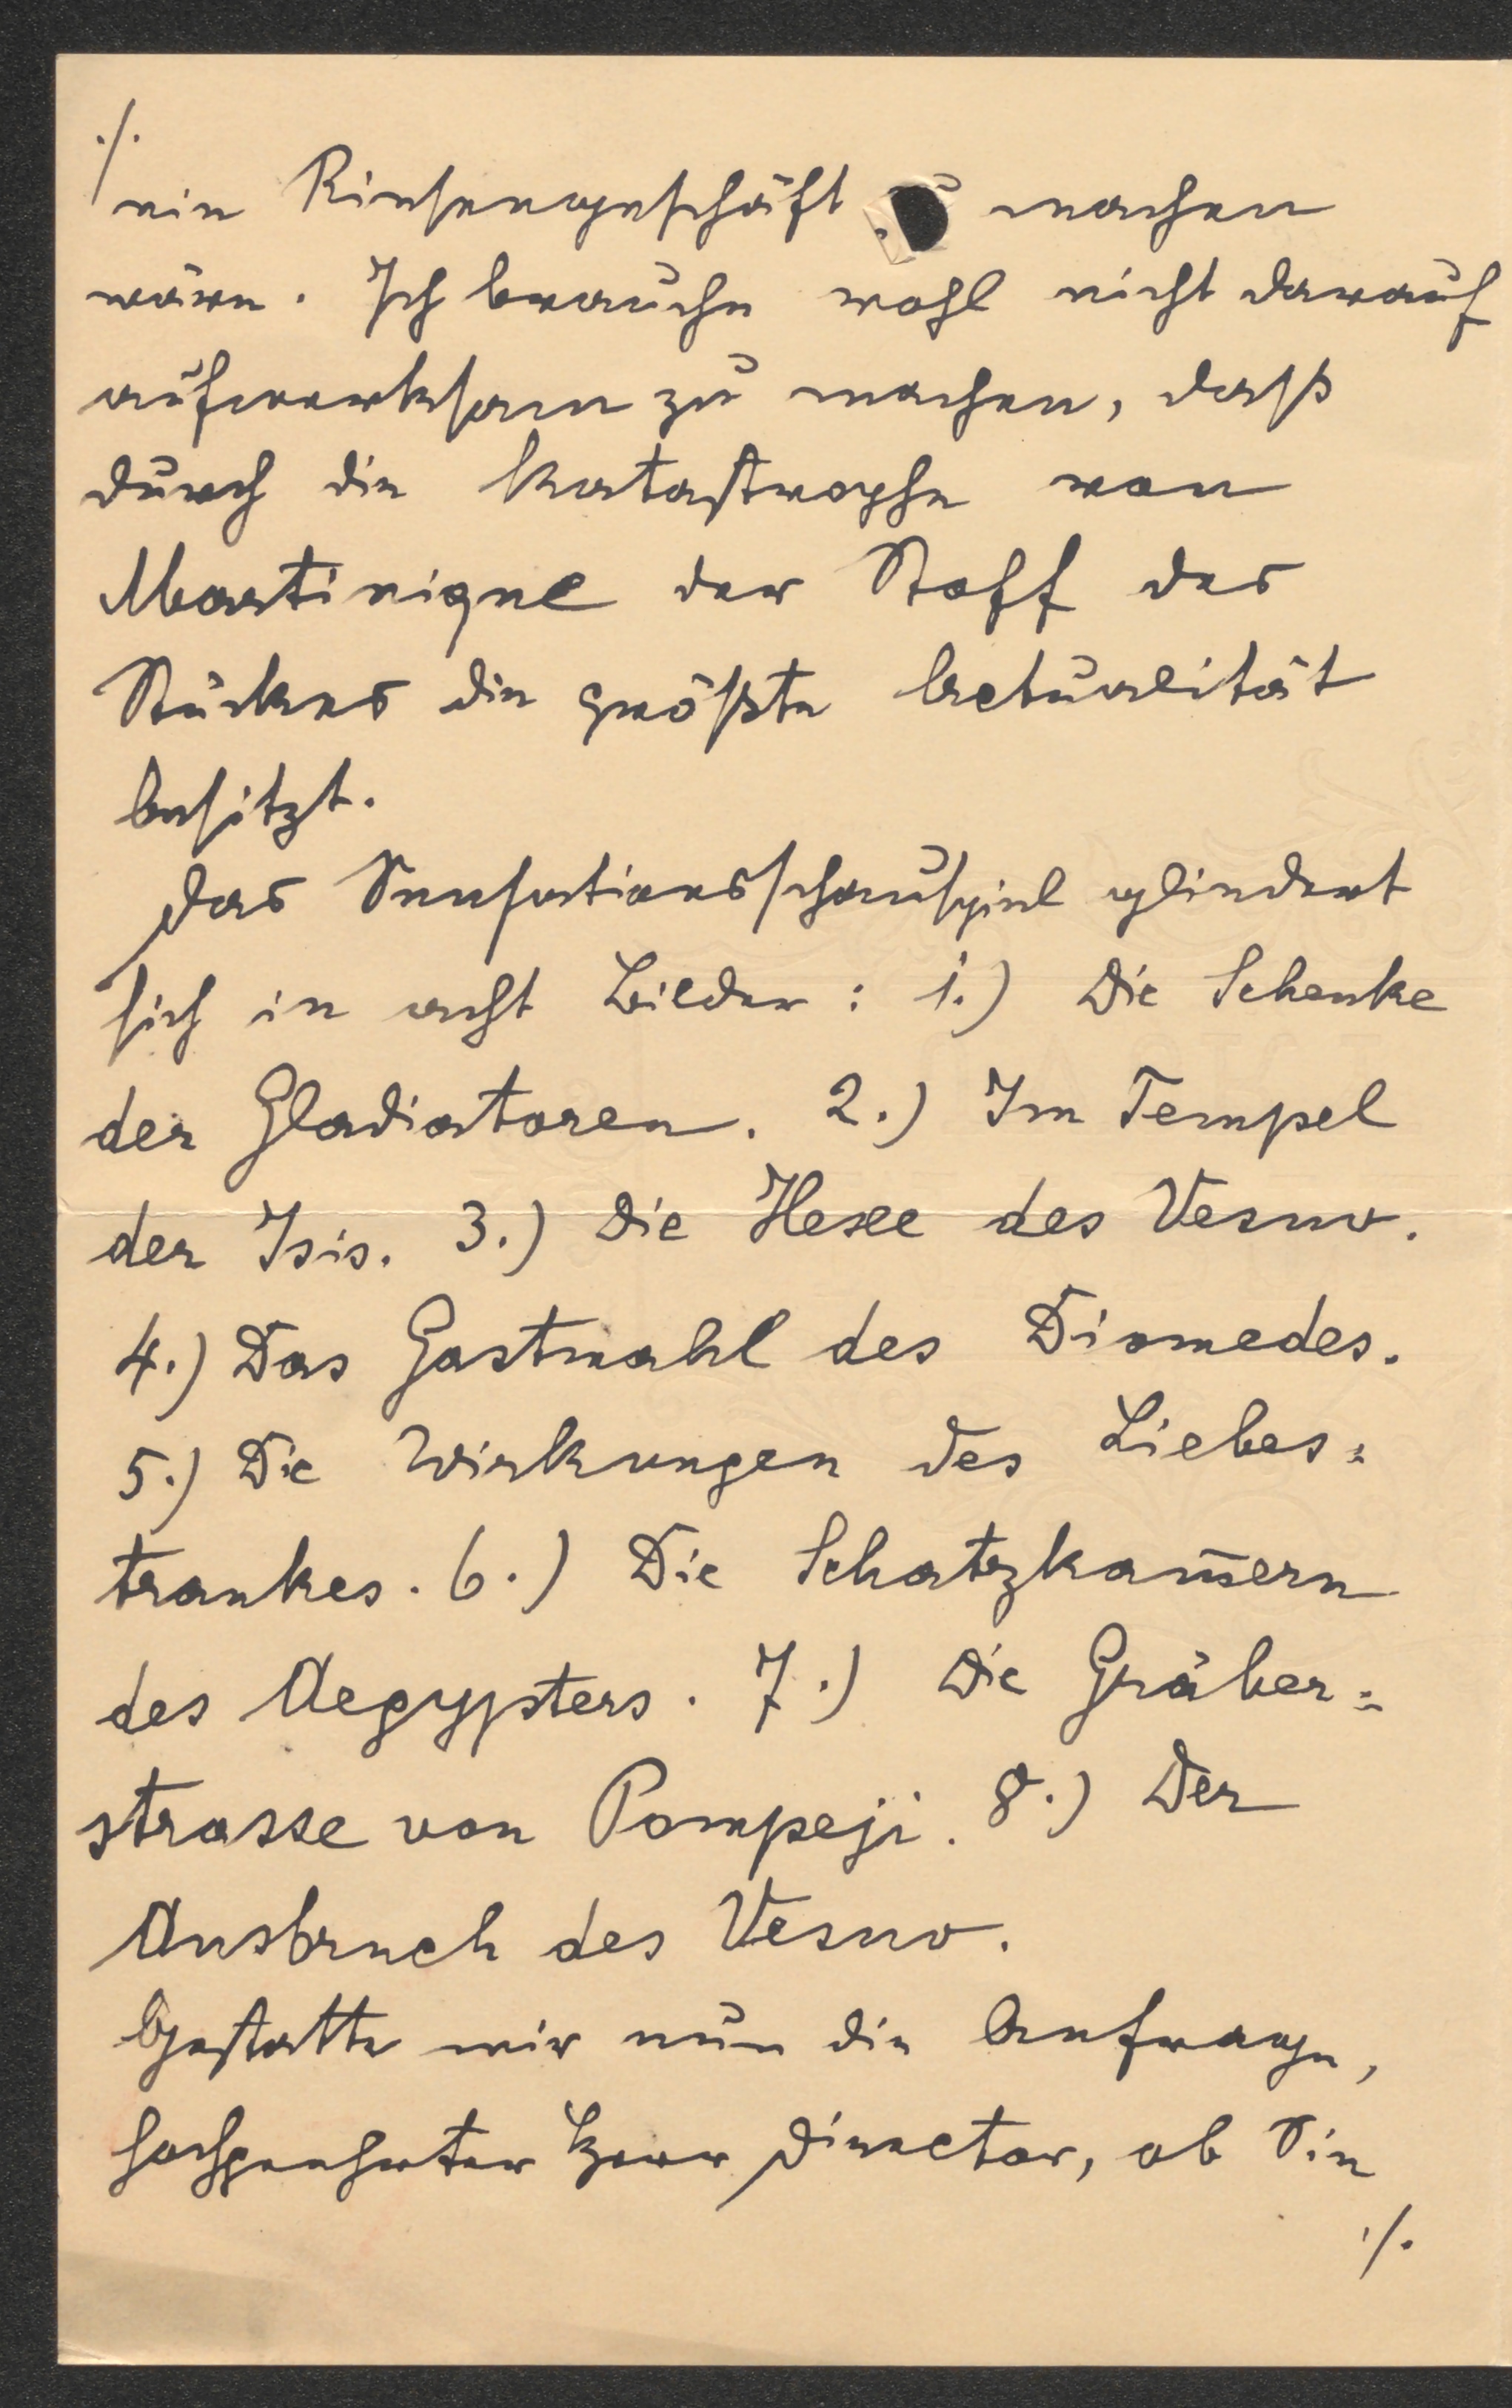 ./.
ein Riesengeschäft zu machen
wäre. Ich brauche wohl nicht darauf
aufmerksam zu machen, daß
durch die Katastrophe von
Martinique der Stoff des
Stückes die größte Actualität
besitzt.
Das Sensationsschauspiel gliedert
sich in acht Bilder: 1.) Die Schenke
der Gladiatoren. 2.) Im Tempel
der Isis. 3.) Die Hexe des Vesuv.
4.) Das Gastmahl des Diomedes.
5.) Die Wirkungen des Liebes=
trankes. 6.) Die Schatzkam̄ern
des Aegypters. 7.) Die Gräber=
strasse von Pompeji. 8.) Der
Ausbruch des Vesuv.
Gestatte mir nun die Anfrage,
hochgeehrter Herr Director, ob Sie
./.